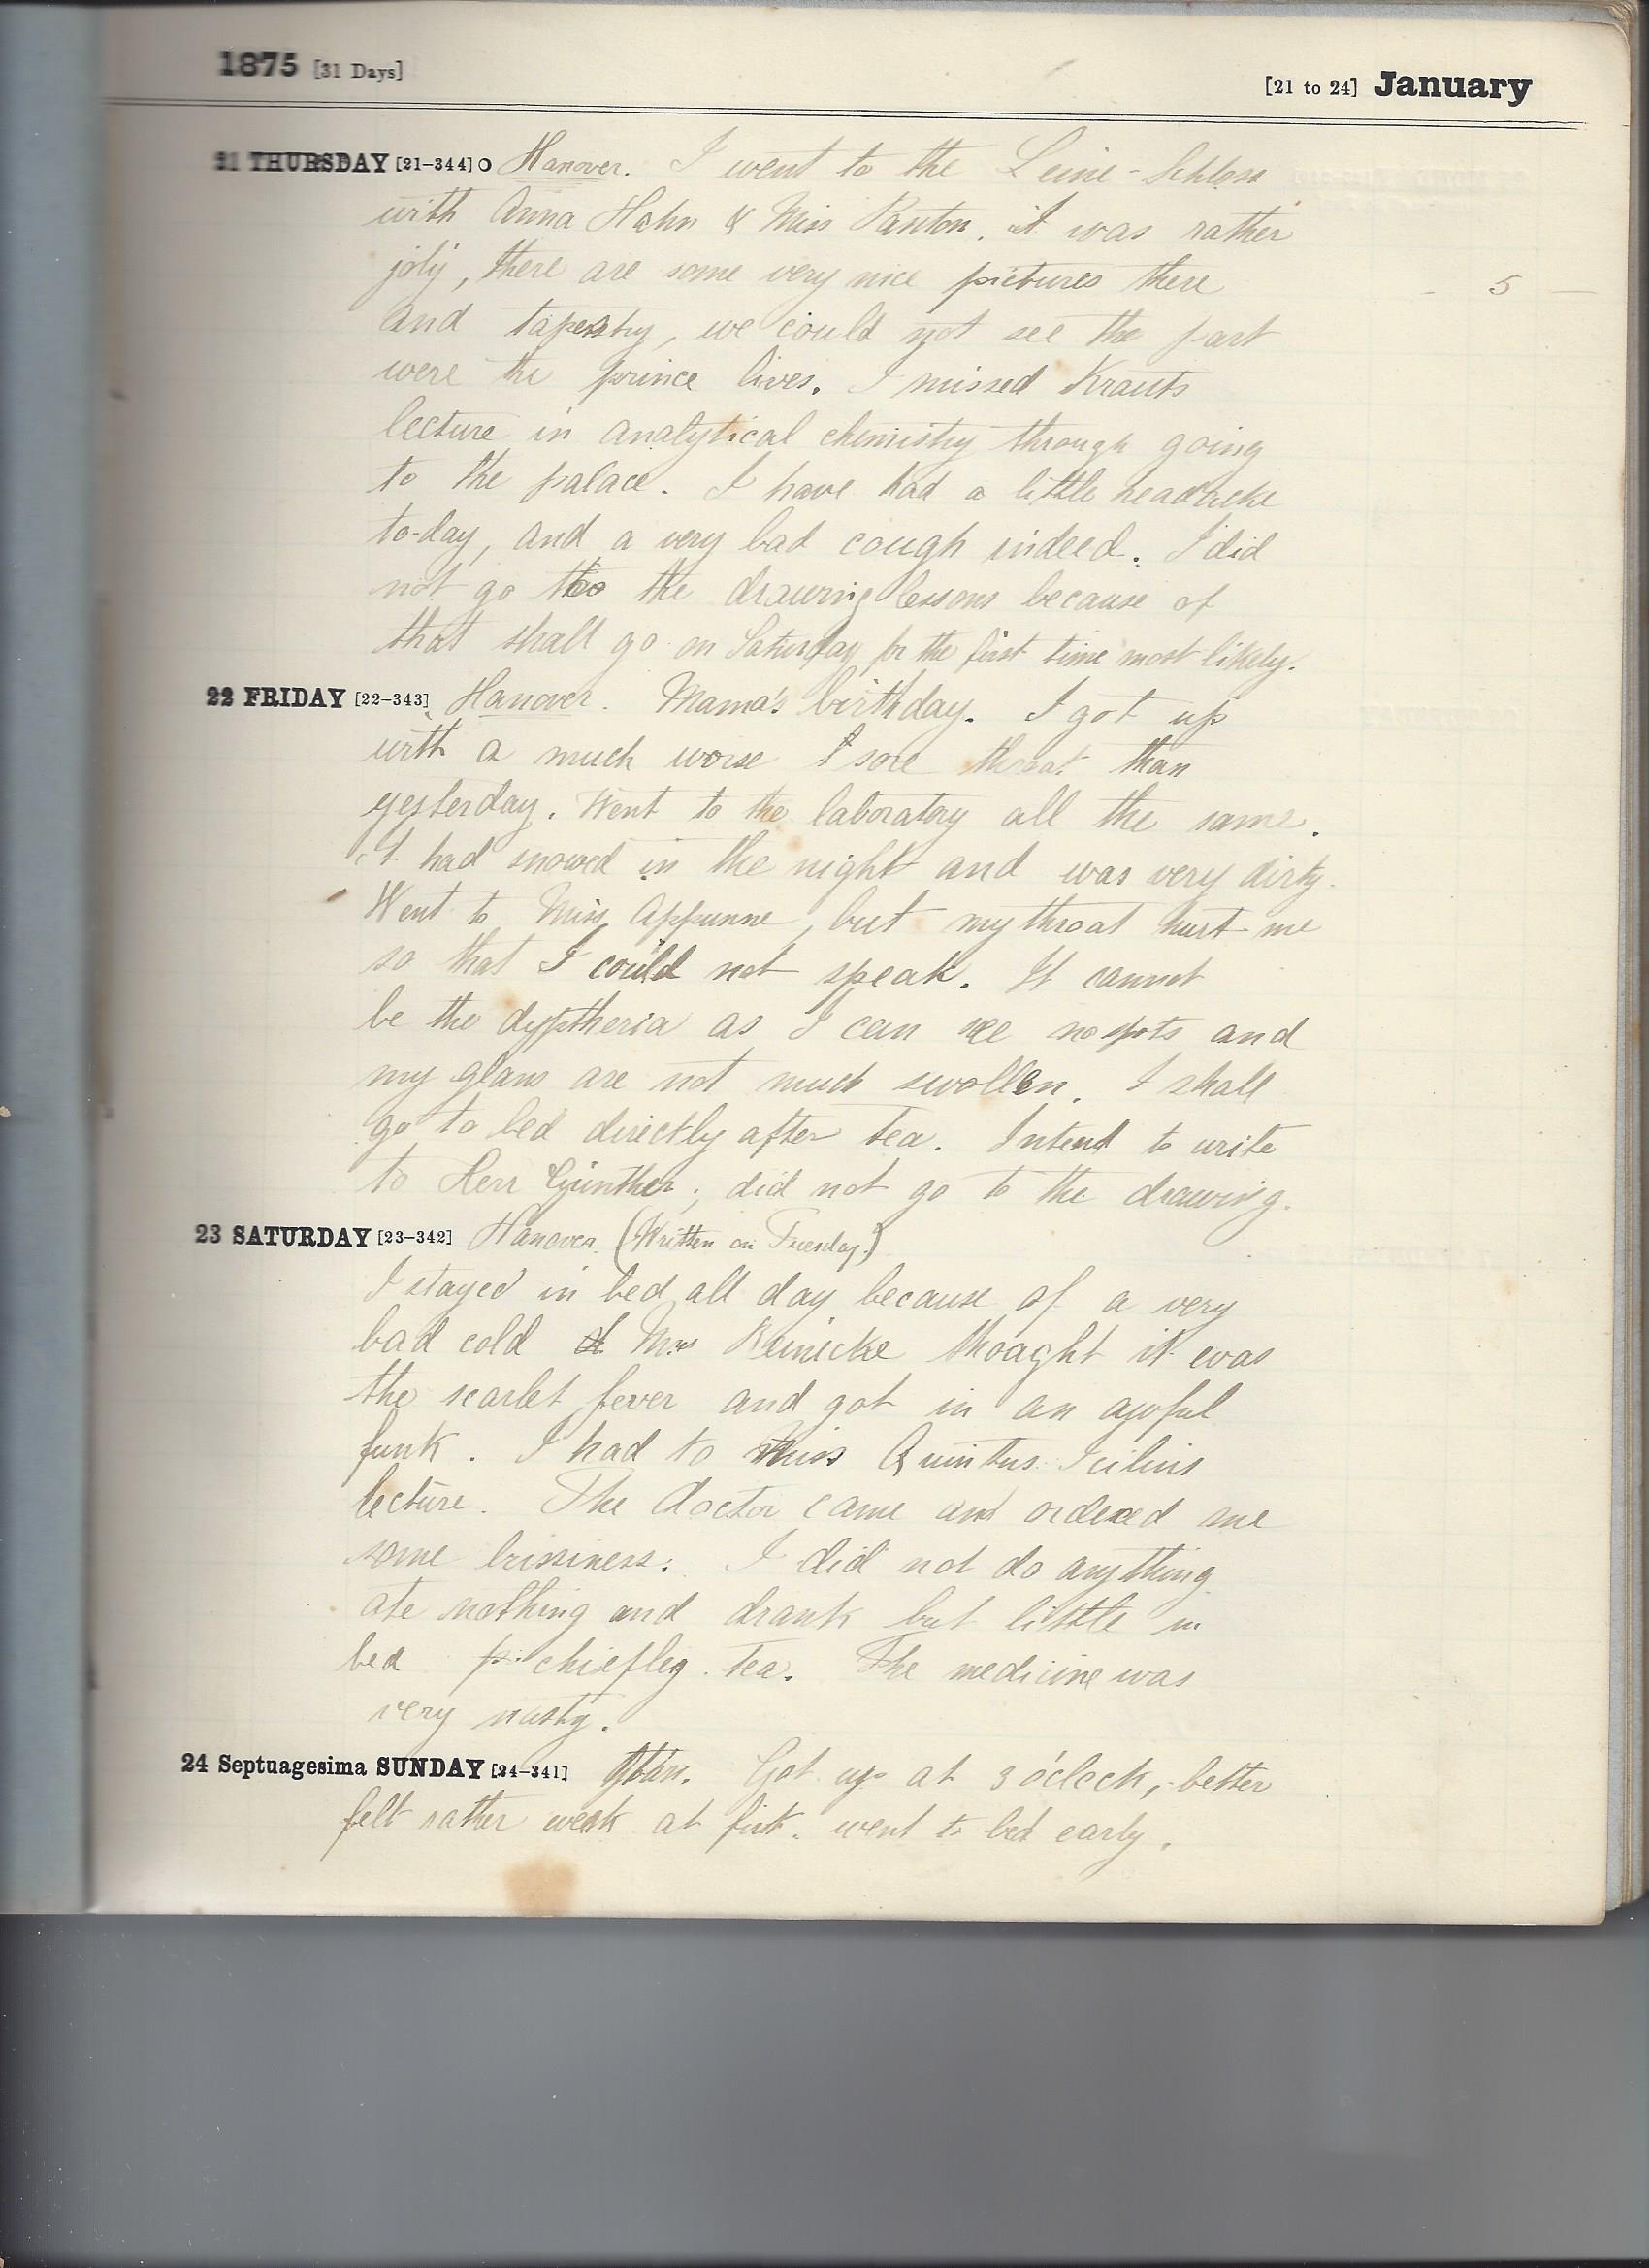 1875 [31 Days]
[21 to 24] January
21 THURSDAY [21-344] O Hanover. I went to the Leine-Schloss
with Anna Hahn & Miss Panton. it was rather
joly, there are some very nice pictures there
- 5 -
and tapestry, we could not see the part
were the prince lives. I missed Krauts
lecture in analytical chemistry through going
to the palace. I have had a little headache
to-day, and a very bad cough indeed. I did
not go to the drawing lessons because of
that shall go on Saturday for the first time most likely.
22 FRIDAY [22-343] Hanover. Mama's birthday. I got up
with a much worse sore throat than
yesterday. Went to the laboratory all the same.
it had snowed in the night and was very dirty.
Went to Miss Appunne, but my throat hurt me
so that I could not speak. It cannot
be the dyptheria as I can see no spots and
my glans are not much swollen. I shall
go to bed directly after tea. Intend to write
to Herr Günther; did not go to the drawing.
23 SATURDAY [23-342] Hanover. (Written on Tuesday.)
I stayed in bed all day because of a very
bad cold Mrs Reinicke thought it was
the scarlet fever and got in an awful
funk. I had to miss Quintus Icilius
lecture. The doctor came and ordered me
some . I did not do anything
ate nothing and drank but little in
bed chiefley tea. The medicine was
very nasty.
24 Septuagesima SUNDAY [24-341] Got up at 3 o'clock, better
felt rather weak at first. went to bed early.